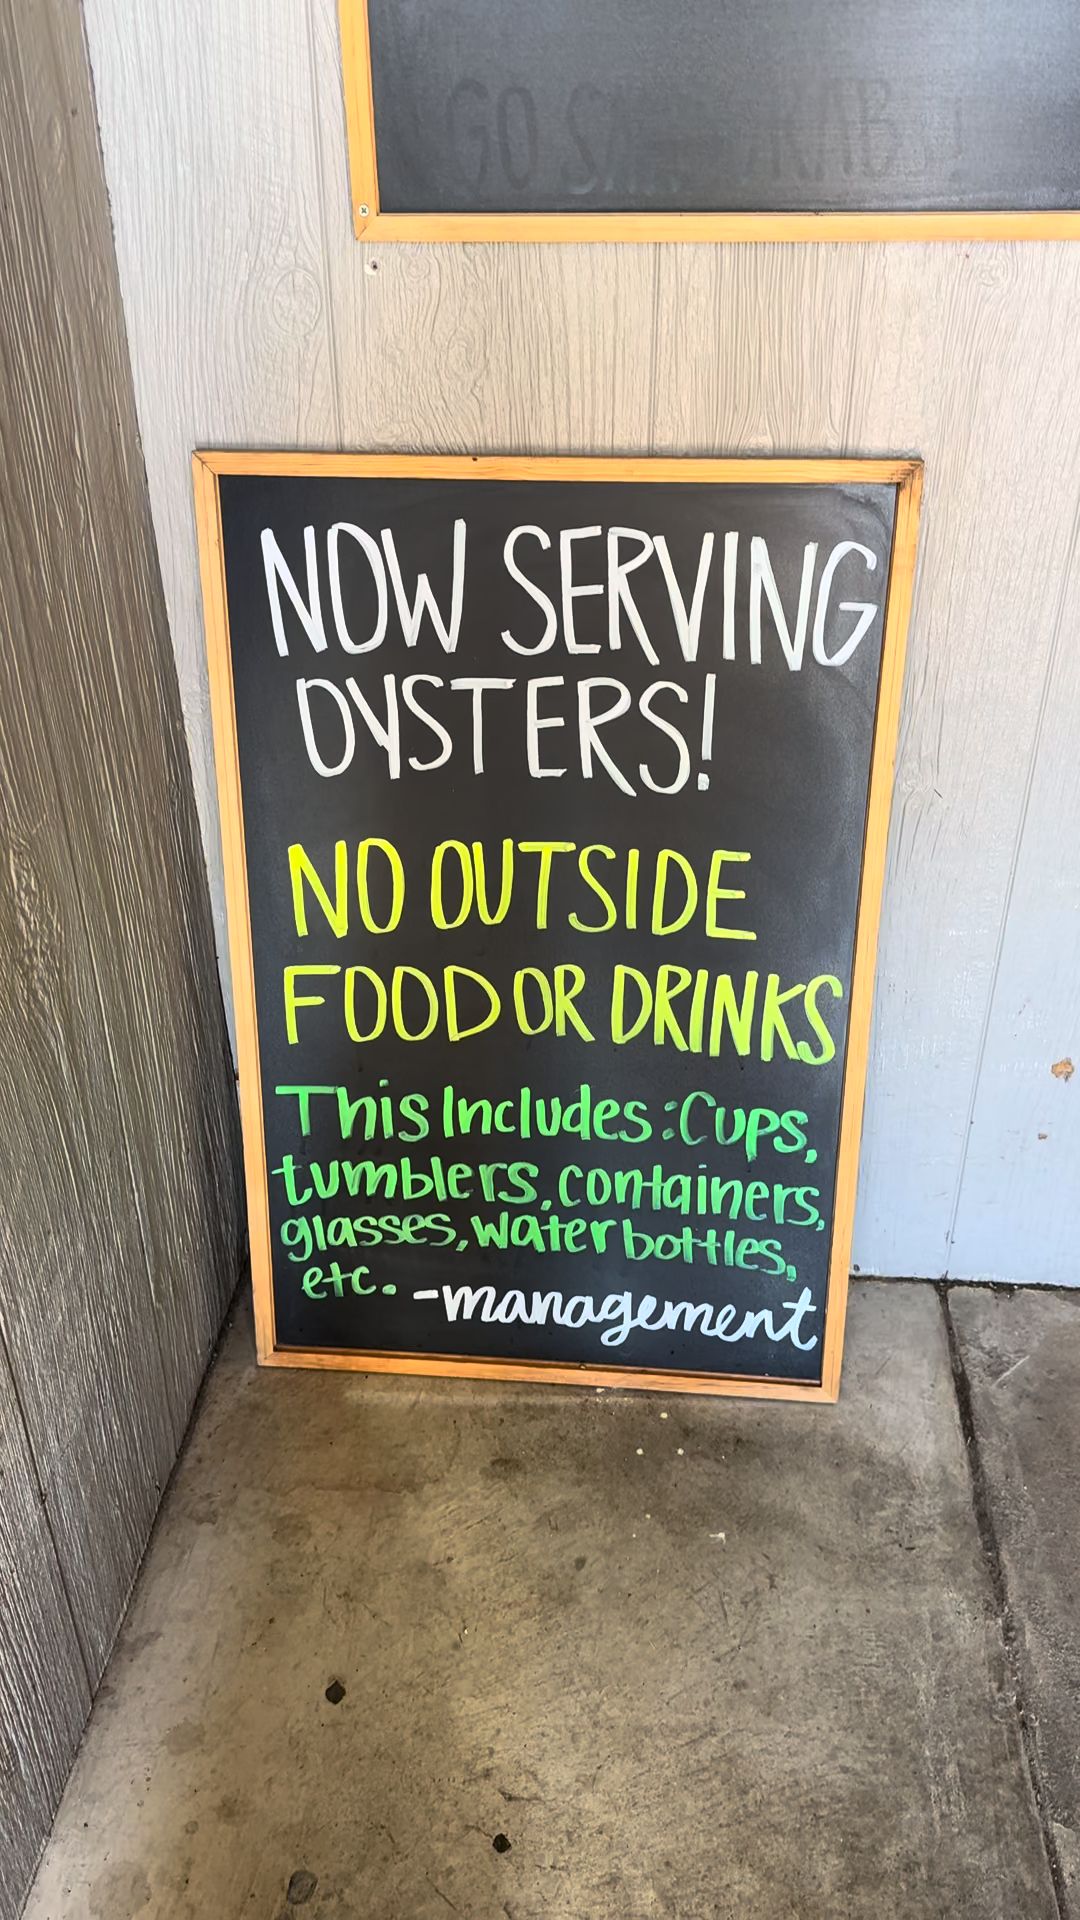 GO
NOW SERVING
OYSTERS!
NO OUTSIDE
FOOD OR DRINKS
This Includes: Cups,
tumblers, containers,
glasses, water bottles,
etc. -management